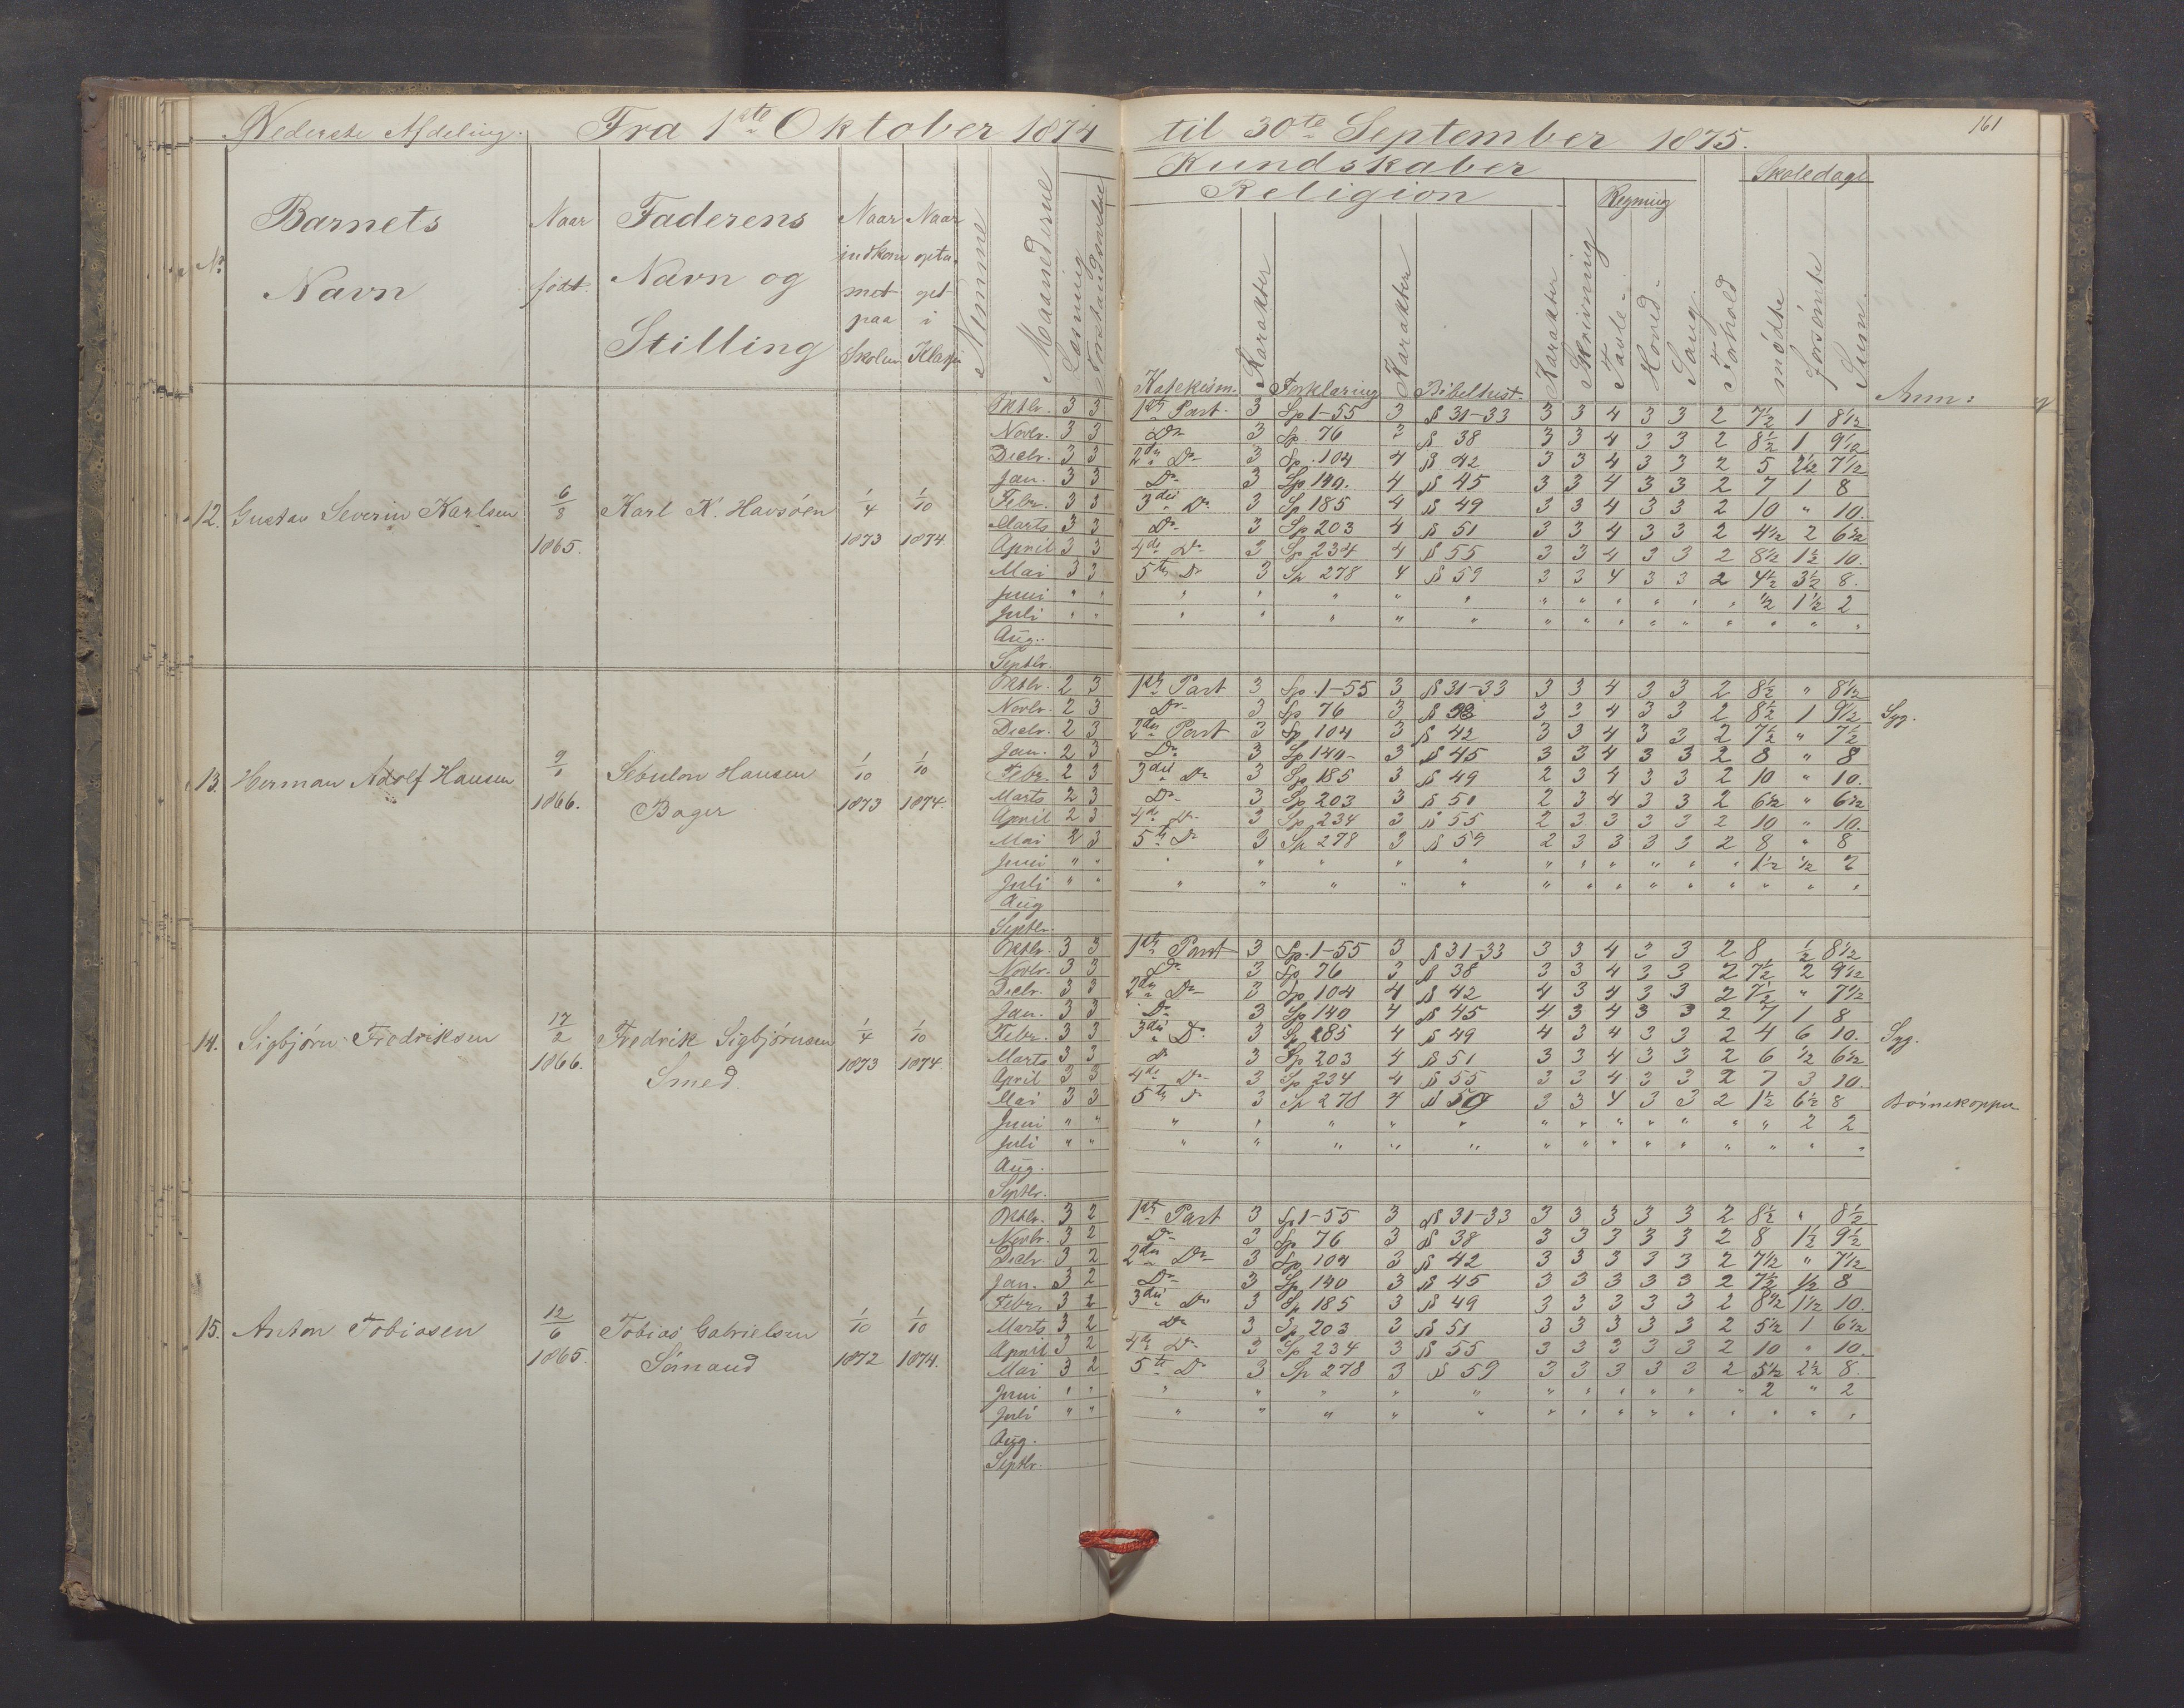 Nederste Afdeling. Fra 1ste Oktober 1874 til 30te September 1875. 161
Kundskaber
Religion Regning Skoledage
No. Barnets Navn Naar født. Faderens Navn og Stilling Naar indkommet paa Skolen Naar optaget i Klassen Nemme Maanederne Læsning Forstandsøvelse Katekism. Karakter Forklaring Karakter Bibelhist. Karakter Skrivning Tavle. Hoved. Sang. Forhold mødte forsömte Sum. Anm:
12. Gustav Severin Karlsen 6/8 1865. Karl K. Havsöen 1/4 1873 1/10 1874
Oktbr. 3 3 1ste Part. 3 Sp 1-55 3 § 31-33 3 3 4 3 3 2 7½ 1 8½
Novbr. 3 3 Do 3 Sp. 76 3 § 38 3 3 4 3 3 2 8½ 1 9½
Decbr. 3 3 2den Do 3 Sp. 104 4 § 42 3 3 4 3 3 2 5 2½ 7½
Jan. 3 3 Do 3 Sp 140. 4 § 45 3 3 4 3 3 2 7 1 8
Febr. 3 3 3die Do 3 Sp 185 4 § 49 3 3 4 3 3 2 10 " 10.
Marts 3 3 Do 3 Sp 203 4 § 51 3 3 4 3 3 2 4½ 2 6½
April 3 3 4de Do 3 Sp 234 4 § 55 3 3 4 3 3 2 8½ 1½ 10.
Mai 3 3 5te Do 3 Sp 278 4 § 59 3 3 4 3 3 2 4½ 3½ 8.
Juni " " " " " " " " " " " " " ½ 1½ 2
Juli " " " " " " " " " " " " " " " "
Aug.
Septbr.
13. Herman Adolf Hansen 9/1 1866. Sebulon Hansen Bager 1/10 1873 1/10 1874.
Oktbr. 2 3 1ste Part 3 Sp. 1-55 3 § 31-33 3 3 4 3 3 2 8½ " 8½
Novbr. 2 3 Do 3 Sp 76 3 § 38 3 3 4 3 3 2 8½ 1 9½ Syg.
Decbr. 2 3 2den Part 3 Sp 104 3 § 42 3 3 4 3 3 2 7½ " 7½
Jan. 2 3 Do 3 Sp 140 3 § 45 3 3 4 3 3 2 8 " 8
Febr. 2 3 3die Do 3 Sp 185 3 § 49 2 3 4 3 3 2 10 " 10.
Marts 2 3 Do 3 Sp 203 3 § 51 2 3 4 3 3 2 6½ " 6½
April 2 3 4de Do 3 Sp 234 3 § 55 2 3 3 3 3 2 10 " 10.
Mai 2 3 5te Do 3 Sp 278 3 § 59 2 3 3 3 3 2 8 " 8
Juni " " " " " " " " " " " " " 1½ ½ 2
Juli " " " " " " " " " " " " " " " "
Aug
Septbr.
14. Sigbjörn Fredriksen 17/2 1866. Fredrik Sigbjörnsen Smed. 1/4 1873 1/10 1874
Oktbr. 3 3 1ste Part 3 Sp. 1-55 3 § 31-33 3 3 4 3 3 2 8 ½ 8½
Novbr. 3 3 Do 3 Sp 76 3 § 38 3 3 4 3 3 2 7½ 2 9½
Decbr. 3 3 2den Do 3 Sp 104 4 § 42 4 3 4 3 3 2 7½ " 7½
Jan. 3 3 Do 3 Sp 140 4 § 45 4 3 4 3 3 2 7 1 8
Febr. 3 3 3die Do 3 Sp 185 4 § 49 4 3 4 3 3 2 4 6 10. Syg.
Marts 3 3 Do 3 Sp 203 4 § 51 3 3 4 3 3 2 6 ½ 6½
April 3 3 4de Do 3 Sp 234 4 § 55 3 3 4 3 3 2 7 3 10.
Mai 3 3 5te Do 3 Sp 278 4 § 59 3 3 4 3 3 2 1½ 6½ 8 Börnekopper
Juni " " " " " " " " " " " " " " 2 2
Juli " " " " " " " " " " " " " " " "
Aug.
Septbr.
15. Anton Tobiasen 12/6 1865. Tobias Gabrielsen Sömand 1/10 1872 1/10 1874.
Oktbr. 3 2 1ste Part 3 Sp 1-55 3 § 31-33 3 3 3 3 3 2 8½ " 8½
Novbr. 3 2 Do 3 Sp 76 3 § 38 3 3 3 3 3 2 8 1½ 9½
Decbr. 3 2 2den Do 3 Sp 104 3 § 42 3 3 3 3 3 2 7½ " 7½
Jan. 3 2 Do 3 Sp 140 3 § 45 3 3 3 3 3 2 7½ ½ 8
Febr. 3 2 3die Do 3 Sp 185 3 § 49 3 3 3 3 3 2 8½ 1½ 10.
Marts 3 2 Do 3 Sp 203 3 § 51 3 3 3 3 3 2 5½ 1 6½
April 3 2 4de Do 3 Sp 234 3 § 55 3 3 3 3 3 2 10 " 10.
Mai 3 2 5te Do 3 Sp 278 3 § 59 3 3 3 3 3 2 5½ 2½ 8.
Juni " " " " " " " " " " " " " 2 " 2
Juli " " " " " " " " " " " " " " " "
Aug.
Septbr.